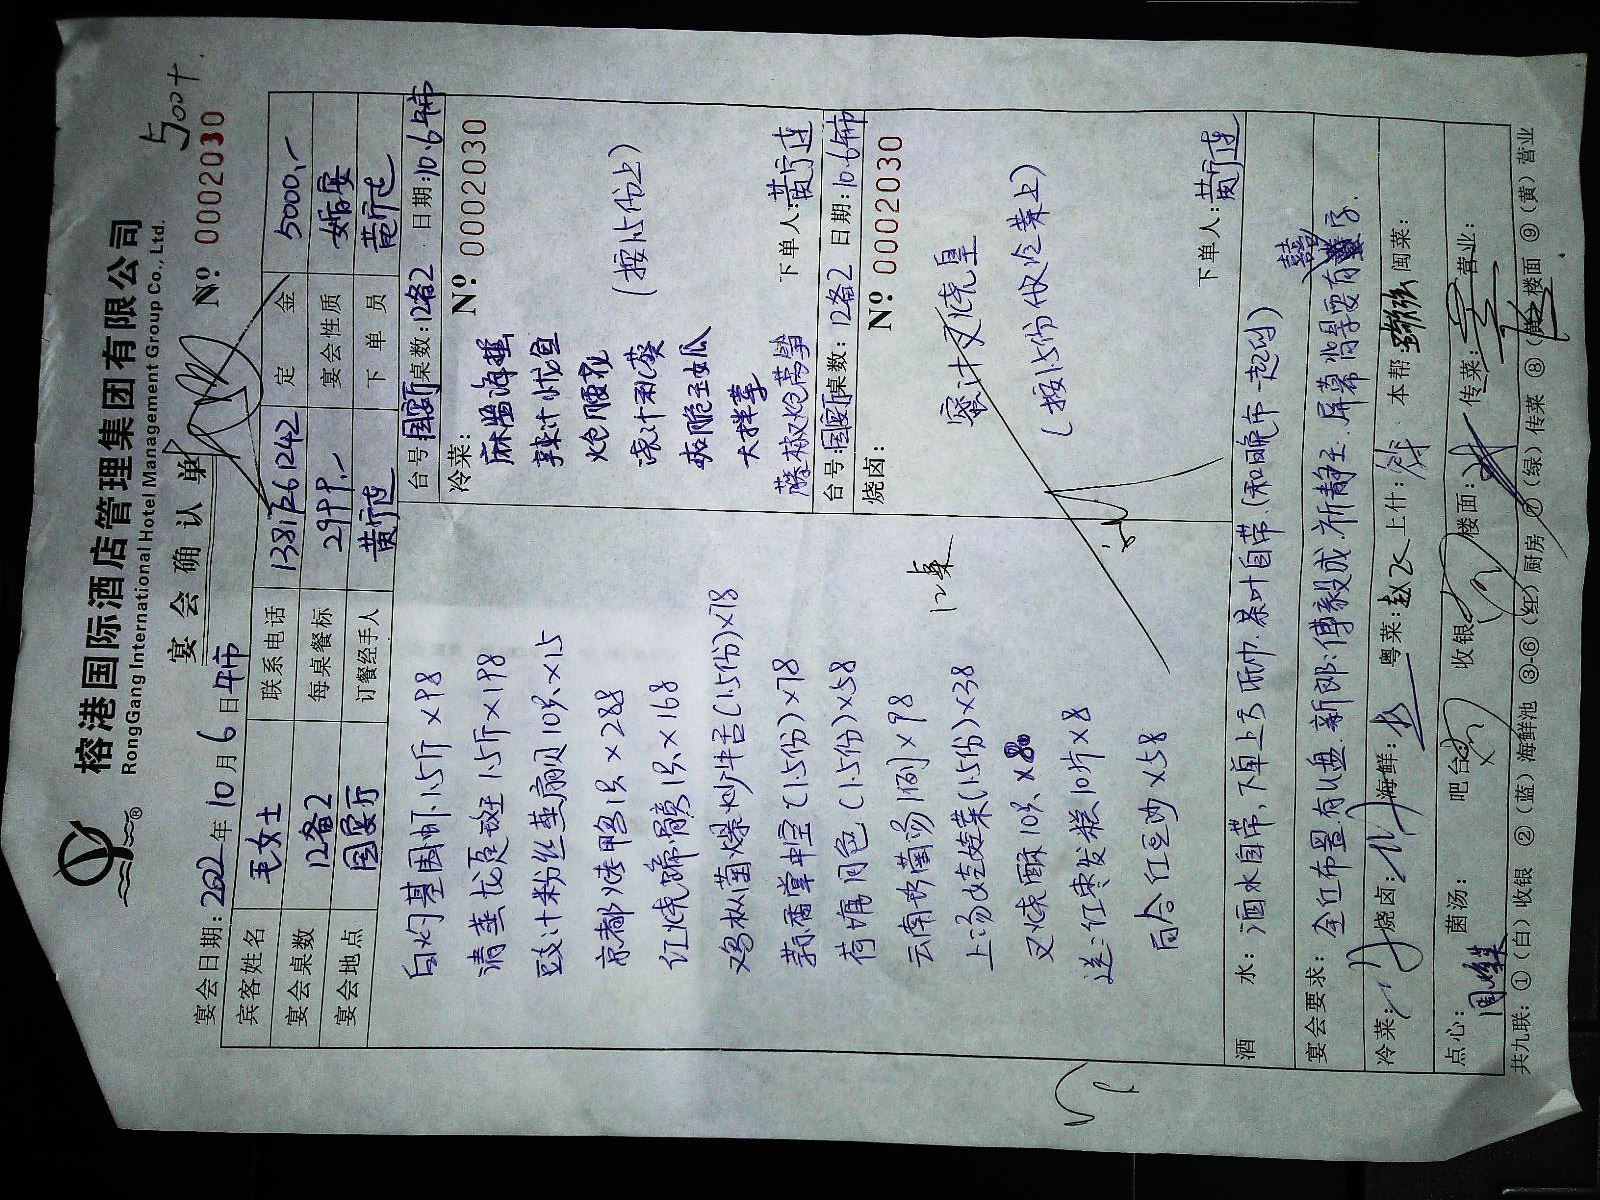 榕港国际酒店管理集团有限公司
RongGang International Hotel Management Group Co., Ltd.
宴会确认单
№ 0002030
宴会日期: 2022年10月6日午市
宾客姓名 毛女士 联系电话 定金 5000,-
宴会桌数 12备2 每桌餐标 2999,- 宴会性质 婚宴
宴会地点 国宴厅 订餐经手人 黄宁连 下单员 黄宁连
白灼基围虾1.5斤×98
清蒸龙趸斑1.5斤×198
豉汁粉丝蒸扇贝10只×15
京都烤鸭1只×288
红烧蹄膀1只×168
鸡枞菌爆炒牛舌(1.5份)×78
(1.5份)×78
荷塘月色(1.5份)×58
云南牧菌汤1例×98
上汤娃娃菜(1.5份)×38
叉烧酥10只×8
送:红枣发糕10片×8
百合红豆沙×58
12桌
台号:国宴厅 桌数:12备2 日期:10.6午市
冷菜:
№ 0002030
麻酱海蜇
辣汁鱿鱼
炝腰花
浇汁秋葵
爽脆玉女瓜
大拌菜
藤椒炝莴笋
(按1.5份上)
下单人:黄宁连
台号:国宴厅 桌数:12备2 日期:10.6午市
烧卤:
№ 0002030
蜜汁叉烧皇
(按1.5份做冷菜上)
下单人:黄宁连
酒水: 酒水自带,下单上5听巾.茶叶自带.(和晚市一起付)
宴会要求: 全红布置有U盘.新郎:傅毅成.祈静玉.屏幕背景要有囍字.
冷菜: 烧卤: 海鲜: 粤菜: 上什: 本帮: 闽菜:
点心: 菌汤: 吧台: 收银: 楼面: 传菜: 营业:
共九联: ①(白)收银 ②(蓝)海鲜池 ③-⑥(红)厨房 ⑦(绿)传菜 ⑧(黄)楼面 ⑨(黄)营业